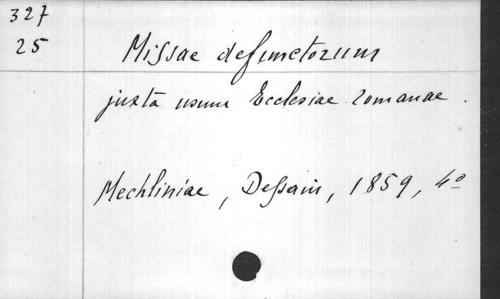 327
25
Missae defunctorum
juxta usum Ecclesiae romanae.
Mechliniae, Dessain, 1859, 4º